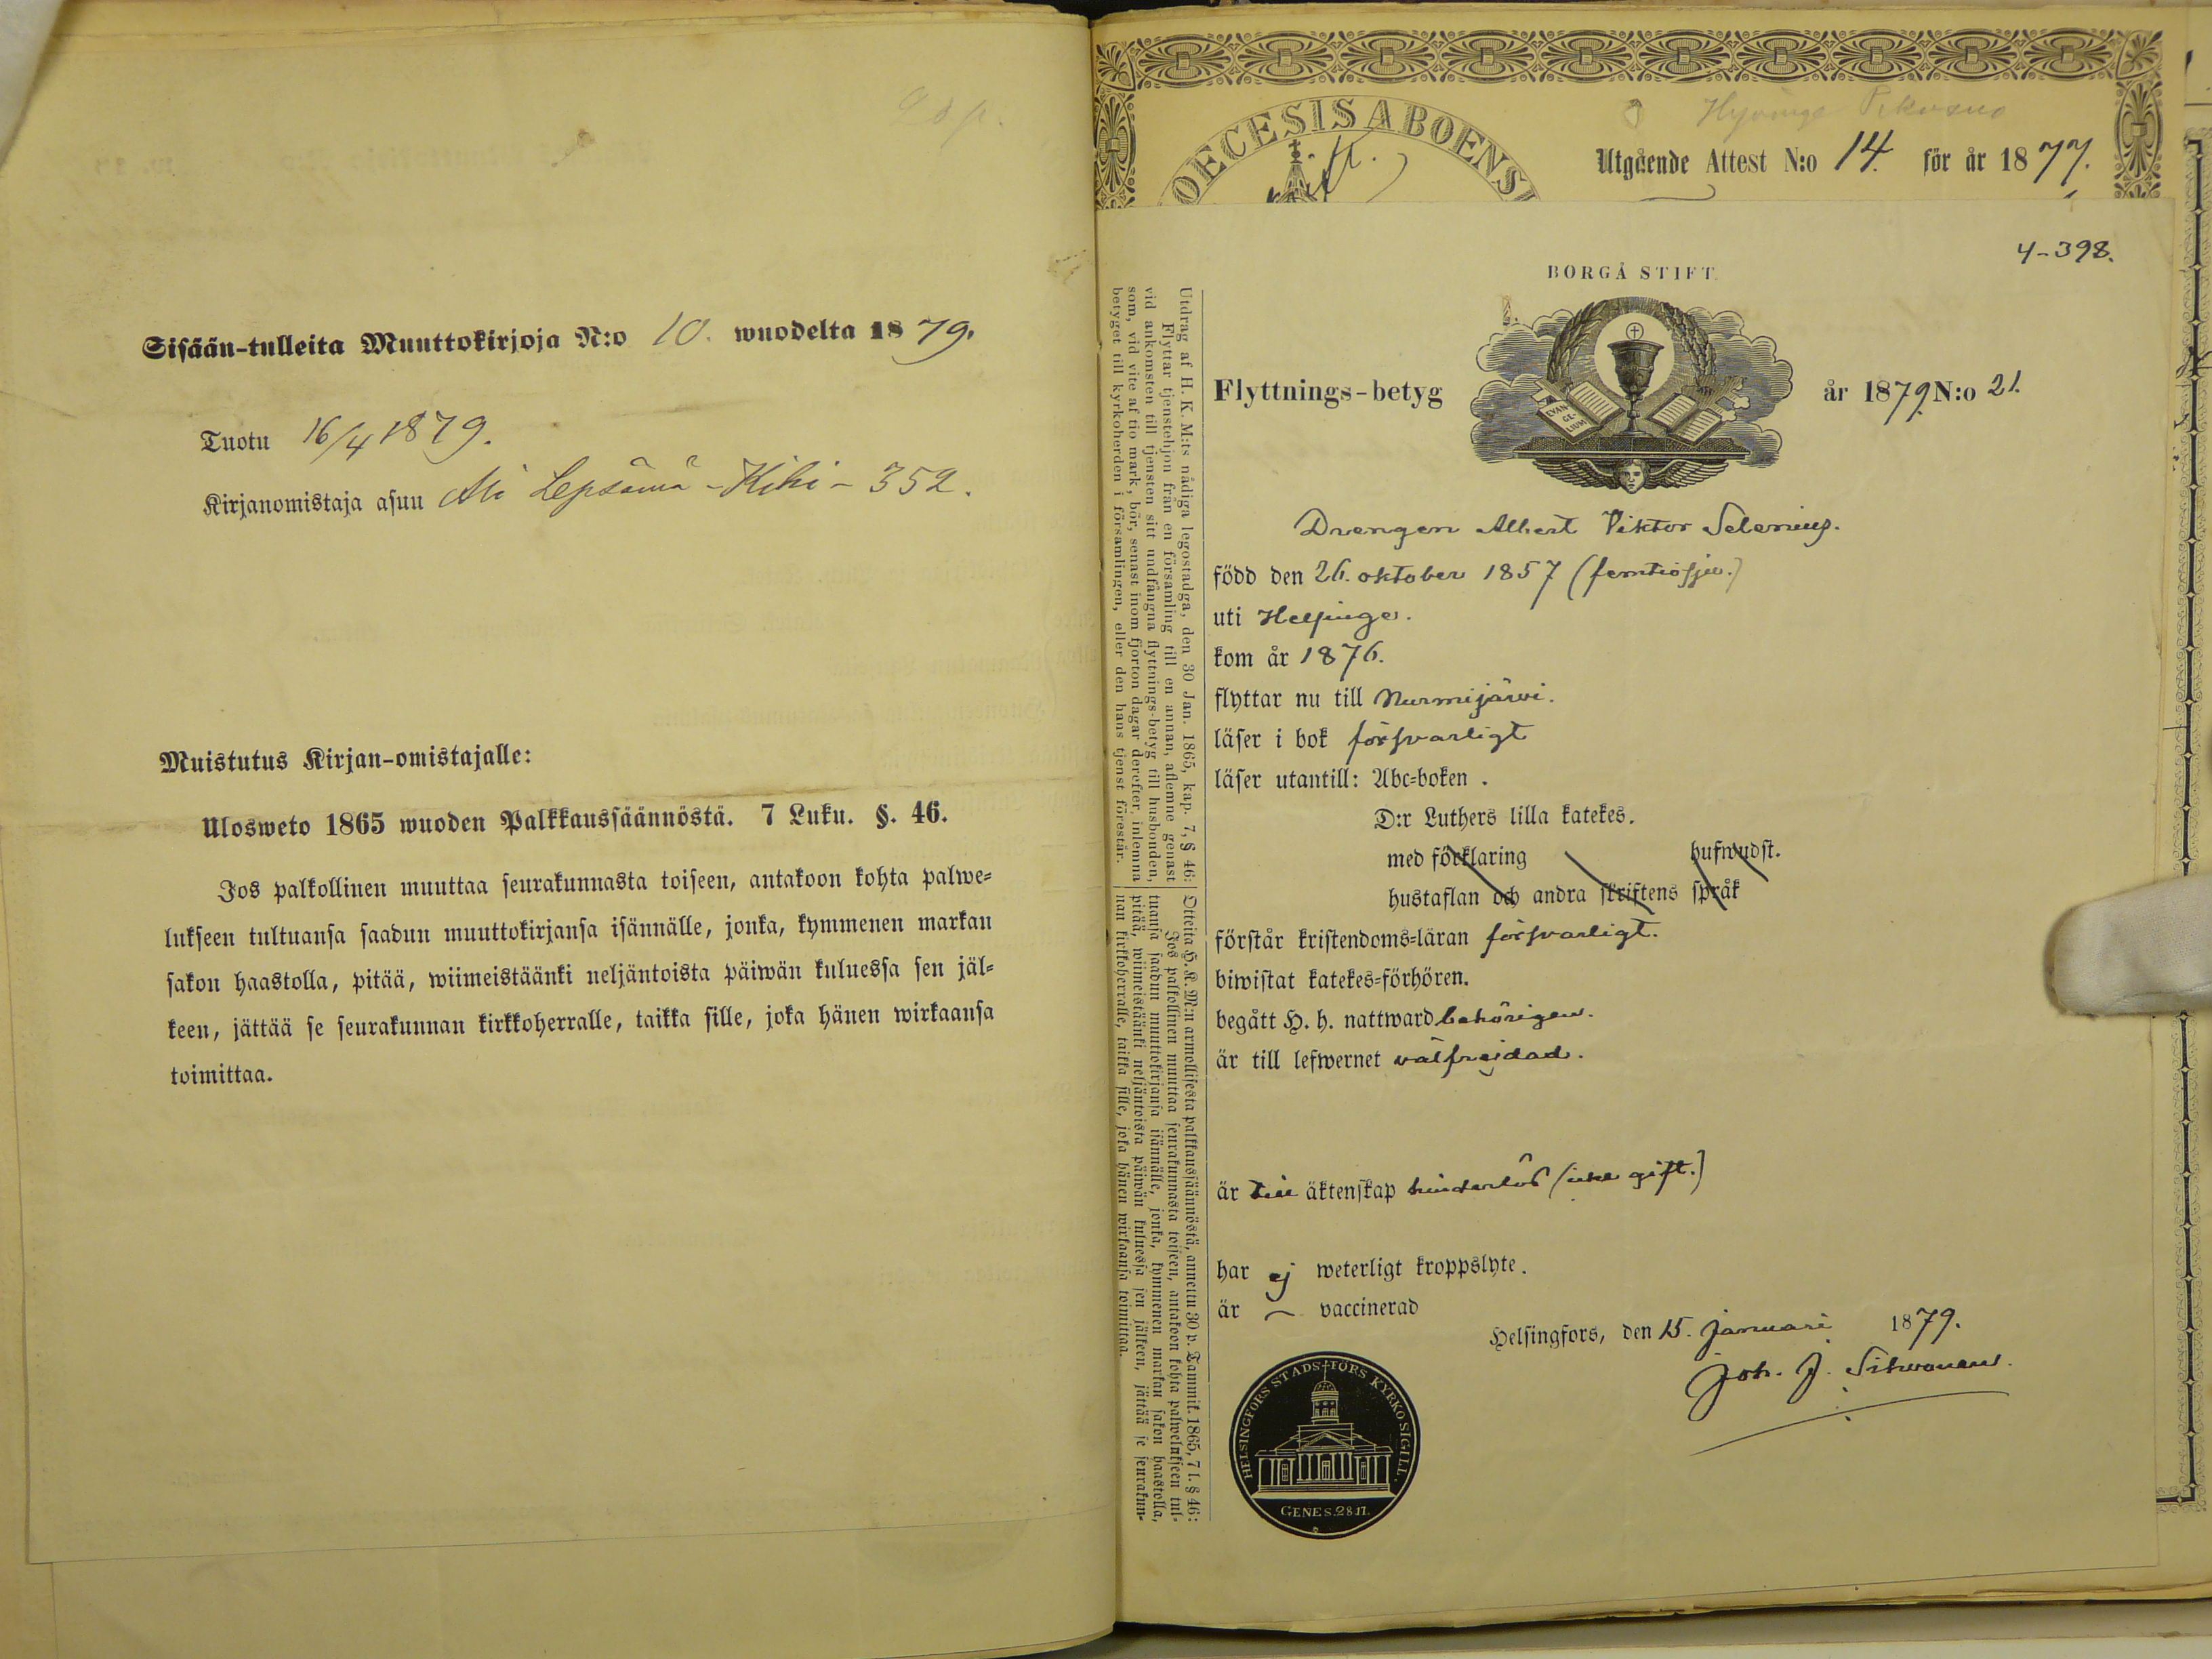 Sisään-tulleita Muuttokirjoja N:o 10. wuodelta 1879.
Tuotu 16/4 1879.
Kirjanomistaja asuu Ali Lepsämä - Kihi - 352.
Muistutus Kirjan-omistajalle:
Ulosweto 1865 wuoden Palkkaussäännöstä. 7 Luku. §. 46.
Jos palkollinen muuttaa seurakunnasta toiseen, antakoon kohta palwe-
lukseen tultuansa saadun muuttokirjansa isännälle, jonka, kymmenen markan
sakon haastolla, pitää, wiimeistäänki neljäntoista päiwän kuluessa sen jäl-
keen, jättää se seurakunnan kirkkoherralle, taikka sille, joka hänen wirkaansa
toimittaa.
OECESIS ABOENSI
Hyvinge
Utgående Attest N:o 14. för år 1877.
4-398.
BORGÅ STIFT.
Flyttnings-betyg
EVAN-
GE-
LIUM
år 1879. N:o 21.
Drengen Albert Viktor Selenius.
född den 26. oktober 1857 (femtiosju.)
uti Helsinge.
kom år 1876.
flyttar nu till Nurmijärvi.
läser i bok försvarligt
läser utantill: Abc-boken.
D:r Luthers lilla katekes.
med förklaring hufwudst.
hustaflan och andra skriftens språk
förstår kristendoms-läran försvarligt.
biwistat katekes-förhören.
begått H. h. nattward behörigen.
är till lefwernet välfrejdad.
är till äktenskap hinderlös (icke gift.)
har ej weterligt kroppslyte.
är ~ vaccinerad
Helsingfors, den 15. januari 1879.
Joh. J. Sihvonen.
HELSINGFORS STADS FÖRS KYRKO SIGILL.
GENES. 28.17.
Utdrag af H. K. M:ts nådiga legostadga, den 30 Jan. 1865, kap. 7, § 46:
Flyttar tjenstehjon från en församling till en annan, aflemne genast
vid ankomsten till tjensten sitt undfångna flyttnings-betyg till husbonden,
som, vid vite af tio mark, bör, senast inom fjorton dagar derefter, inlemna
betyget till kyrkoherden i församlingen, eller den hans tjenst förestår.
Otteita H. K. M:n armollisesta palkkaussäännöstä, annettu 30 p. Tammik. 1865, 7 l. § 46:
Jos palkollinen muuttaa seurakunnasta toiseen, antakoon kohta palwelukseen tul-
tuansa saadun muuttokirjansa isännälle, jonka, kymmenen markan sakon haastolla,
pitää, wiimeistäänki neljäntoista päiwän kuluessa sen jälkeen, jättää se seurakun-
nan kirkkoherralle, taikka sille, joka hänen wirkaansa toimittaa.